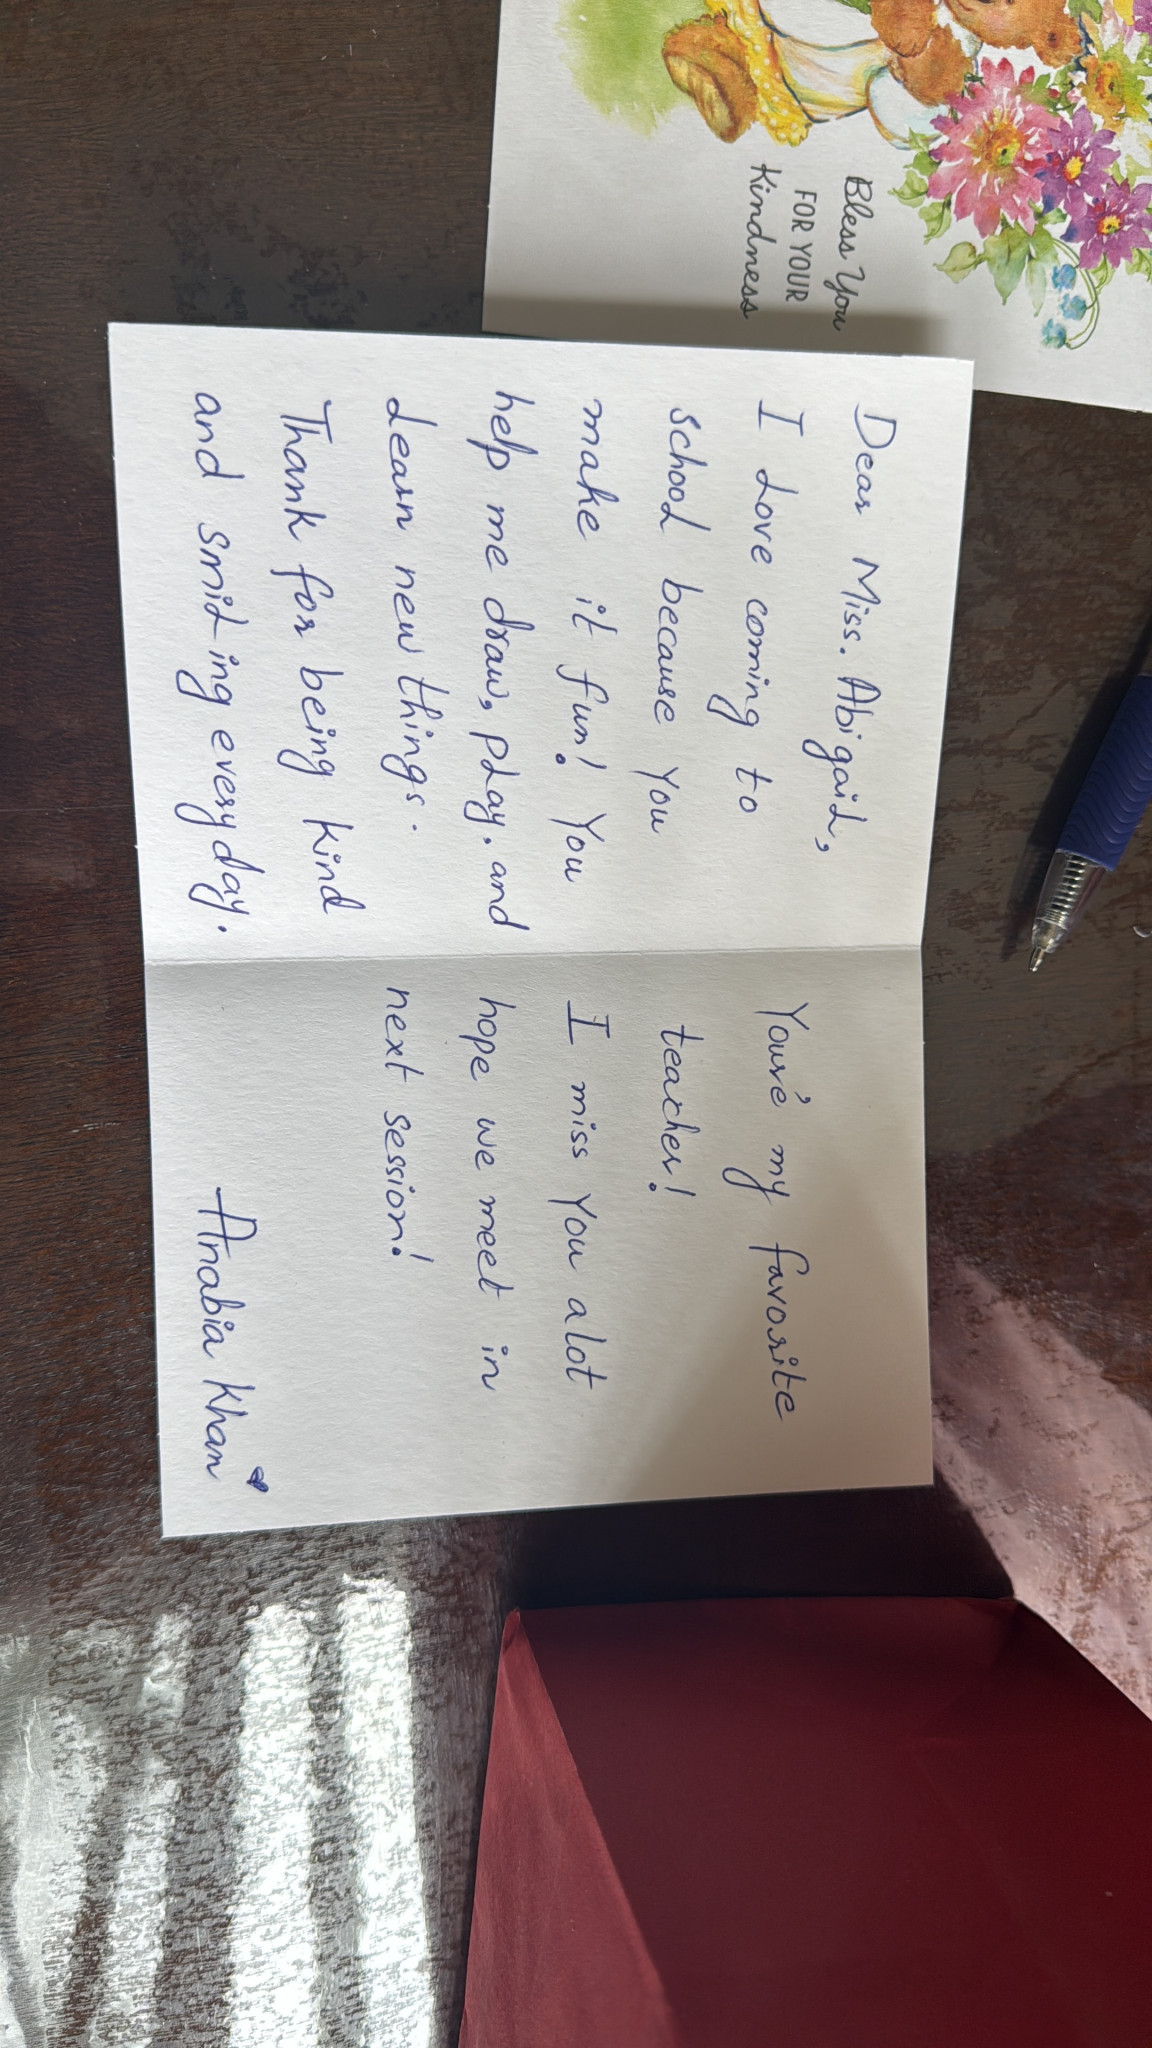 Bless You
FOR YOUR
Kindness
Dear Miss. Abigail,
I Love coming to
school because You
make it fun! You
help me draw, play. and
Learn new things.
Thank for being kind
and smiling every day.
Youre' my favorite
teacher!
I miss You alot
hope we meet in
next session!
Anabia Khan